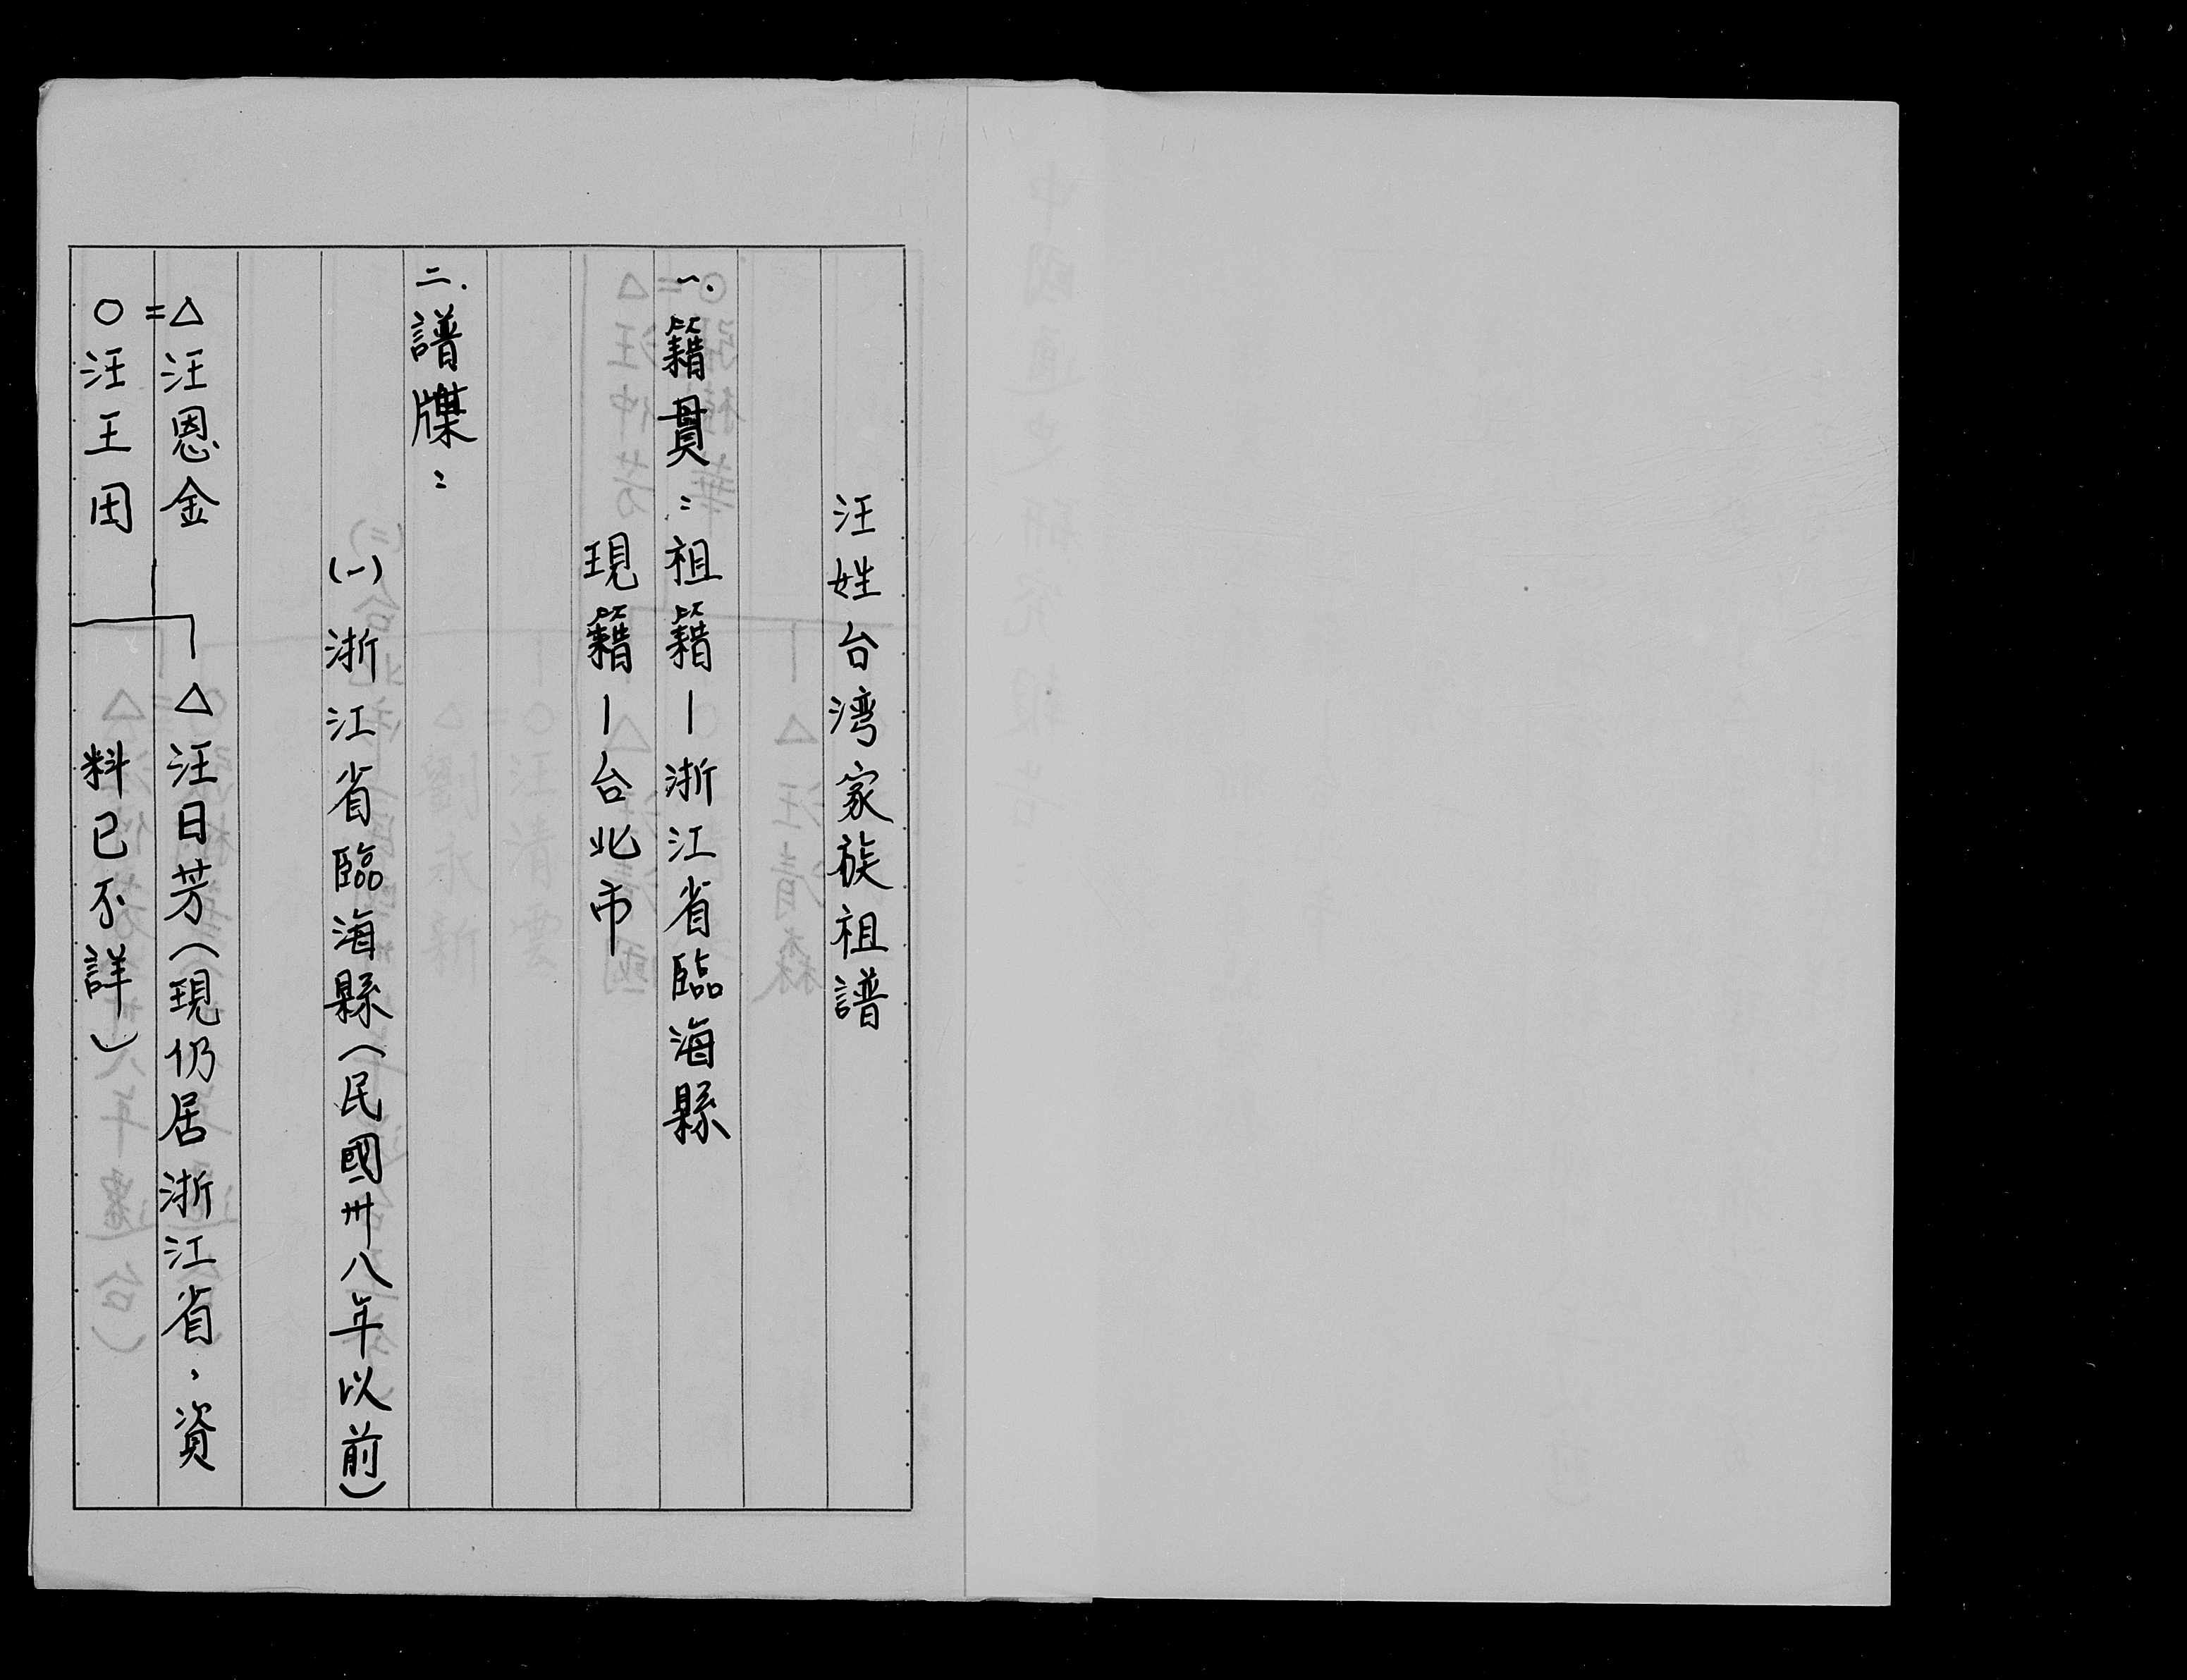 汪姓台湾家族祖譜
一.籍貫:祖籍—浙江省臨海縣
現籍—台北市
二.譜牒:
(一)浙江省臨海縣(民國卅八年以前)
△汪恩金
=
○汪王田
△汪日芳(現仍居浙江省,資
料已不詳)